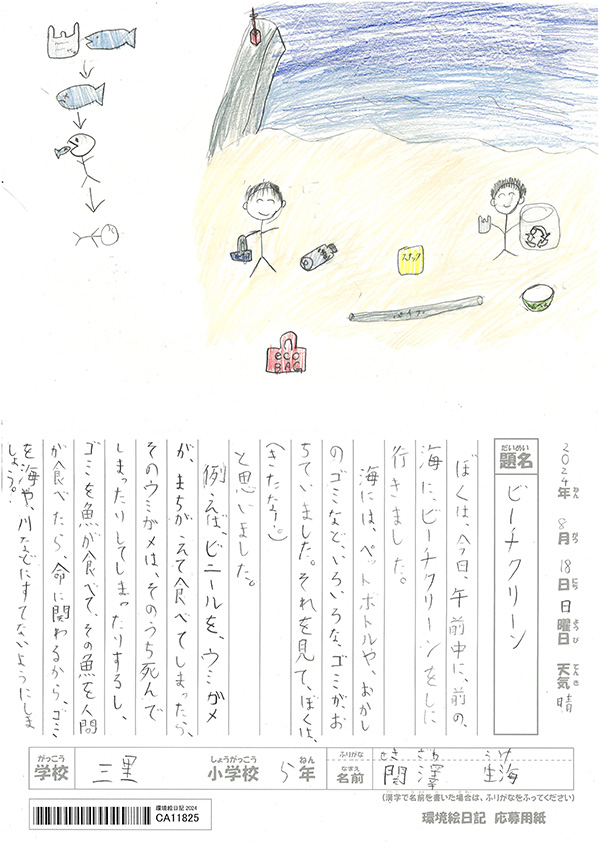 eco
BAG
スナック
パイプ
2024年 8月 18日 日曜日 天気 晴
ねん がつ にち ようび てんき
だいめい
題名
ビーチクリーン
ぼくは、今日、午前中に、前の、
海に、ビーチクリーンをしに
行きました。
海には、ペットボトルや、おかし
のゴミなど、いろいろな、ゴミが、お
ちていました。それを見て、ぼくは、
(きたなっ!)
と思いました。
例えば、ビニールを、ウミガメ
が、まちがえて食べてしまったら、
そのウミガメは、そのうち死んで
しまったりしてしまったりするし、
ゴミを魚が食べて、その魚を人間
が食べたら、命に関わるから、ゴミ
を海や、川などにすてないようにしま
しょう。
がっこう
学校
三里
しょうがっこう
小学校
5
ねん
年
ふりがな
せき ざわ うけ
なまえ
名前
関澤 生海
(漢字で名前を書いた場合は、ふりがなをふってください)
環境絵日記2024
CA11825
環境絵日記 応募用紙